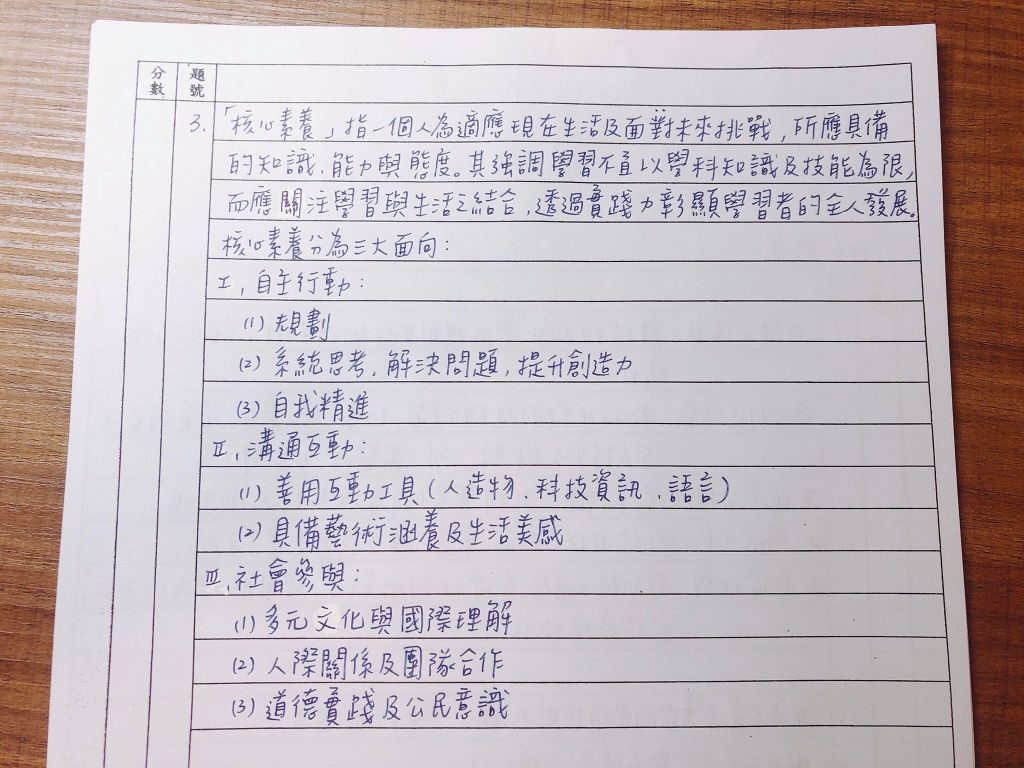 分數 題號
3. 「核心素養」指一個人為適應現在生活及面對未來挑戰,所應具備
的知識、能力與態度。其強調學習不宜以學科知識及技能為限,
而應關注學習與生活之結合,透過實踐力彰顯學習者的全人發展。
核心素養分為三大面向:
I、自主行動:
(1) 規劃
(2) 系統思考、解決問題,提升創造力
(3) 自我精進
II、溝通互動:
(1) 善用互動工具(人造物、科技資訊、語言)
(2) 具備藝術涵養及生活美感
III、社會參與:
(1) 多元文化與國際理解
(2) 人際關係及團隊合作
(3) 道德實踐及公民意識